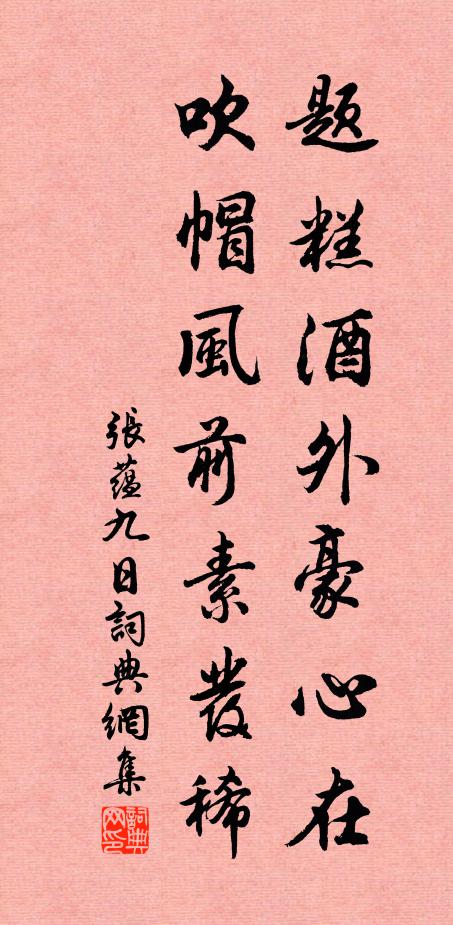 題糕酒外豪心在
吹帽風前素發稀
張蘊九日詞典網集
詞典网印